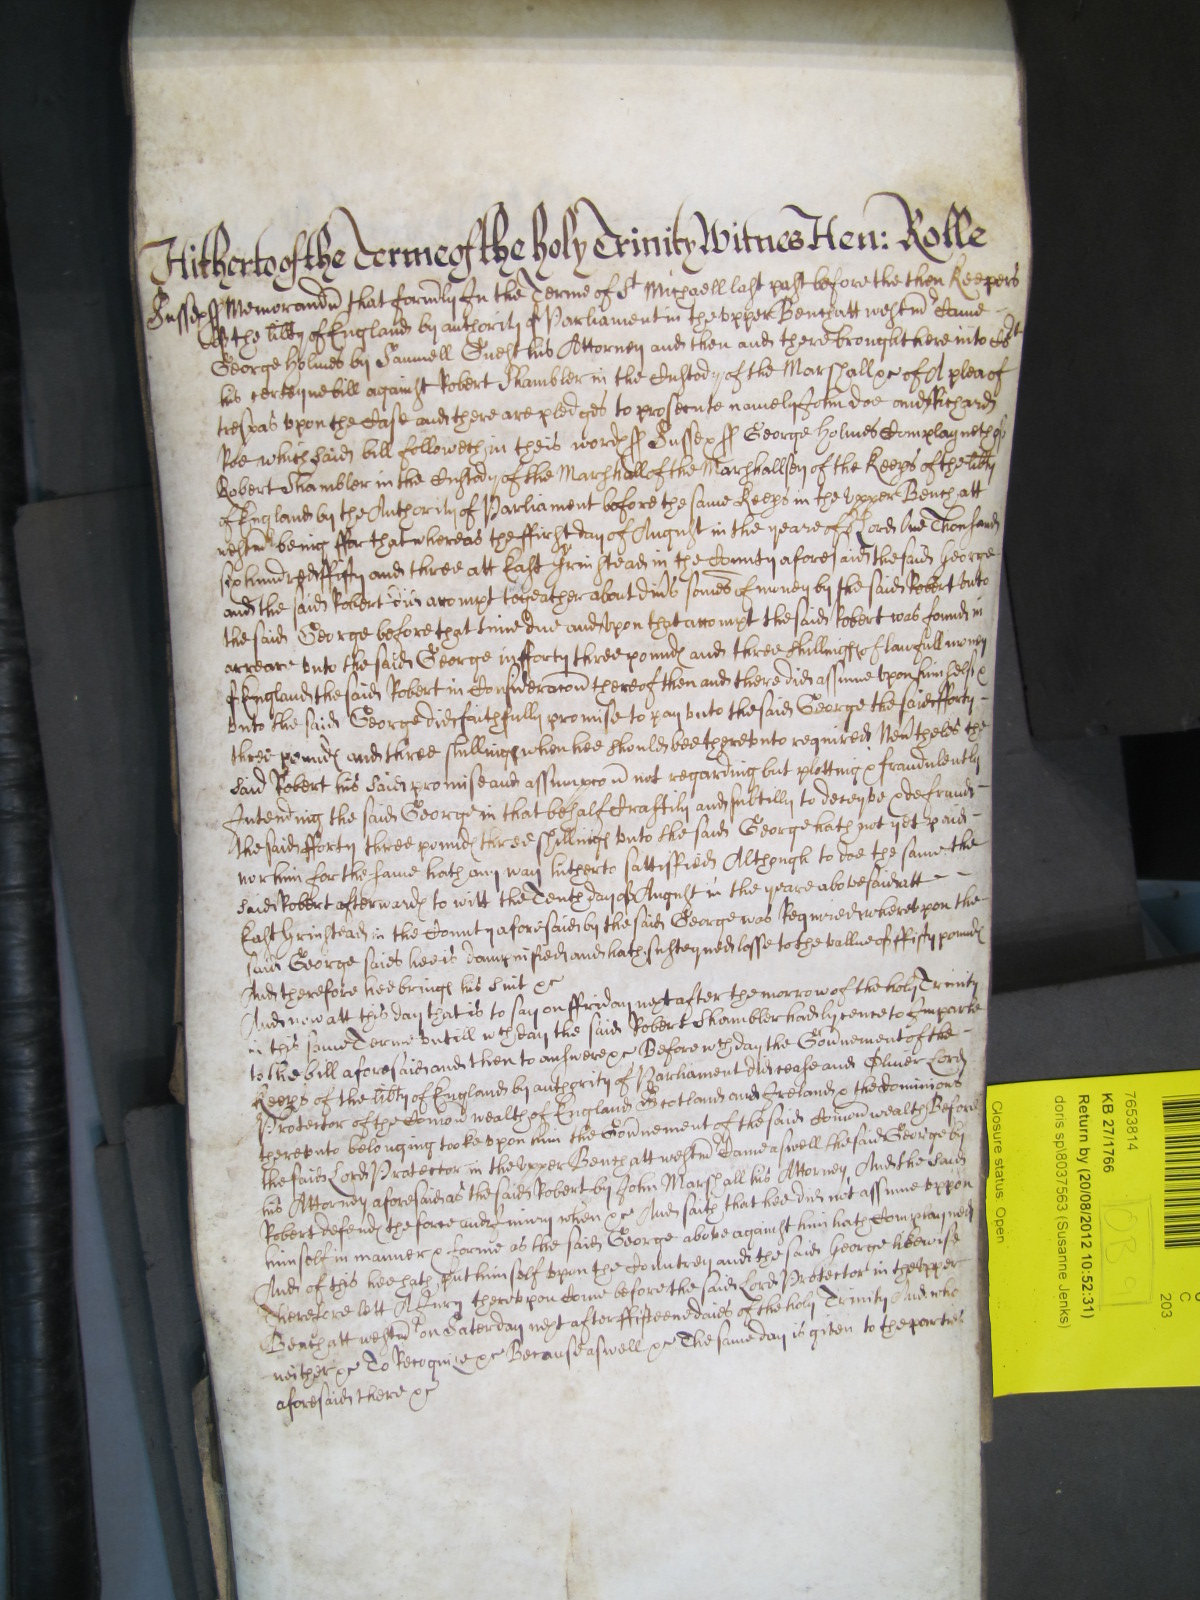 Hitherto of the Terme of the holy Trinity Witnes Hen: Rolle
Sussex ss Memorandū that formly In the Terme of St Michaell last past before the then Keepers
Of the libty of England by authority of Parliament in the vpper Bench att westmr Came
George Holmes by Samuell Guest his Attorney and then and there brought here into Crt
his certeyne bill against Robert Shambler in the Custody of the Marshall &c of A plea of
trespas vpon the Case and there are pledges to prosecute namely John Doe and Richard
Roe which said bill followeth in theis words ss Sussex ss George Holmes Complayneth of
Robert Shambler in the Custody of the Marshall of the Marshallsey of the Keeps of the libty
of England by the Authority of Parliament before the same Keeps in the vpper Bench att
westmr being ffor that whereas the ffirst day of August in the yeare of or Lord One Thousand
six hundred ffifty and three att East Grinstead in the County aforesaid the said George
and the said Robert did accompt togeather about divs somes of money by the said Robert vnto
the said George before that time due and vpon that accompt the said Robert was found in
arreare vnto the said George in fforty three pounds and three shillings of lawfull money
of England the said Robert in Consideracoñ thereof then and there did assume vpon himself &
vnto the said George did faithfully promise to pay vnto the said George the said fforty
three pounds and three shillings when hee should bee therevnto required Nevtheles the
said Robert his said promise and assumpcoñ not regarding but plotting & fraudulently
Intending the said George in that behalf Craftily and subtilly to deceyve & defraud
the said fforty three pounds three shillings vnto the said George hath not yet paid
nor him for the same hath any way hitherto sattisffied Although to doe the same the
said Robert afterwards to witt the Tenth day of August in the yeare abovesaid att
East Grinstead in the County aforesaid by the said George was Required wherevpon the
said George saies hee is dampnified and hath susteyned losse to the vallue of ffifty pounds
And therefore hee brings his suit &c
And now att this day that is to say on ffriday next after the morrow of the holy Trinity
in this same Terme vntill wch day the said Robert Shambler had lycence to Imparle
to the bill aforesaid and then to answere &c Before wch day the Govnement of the
Keeps of the libty of England by authority of Parliament did cease and Oliver Lord
Protector of the Comoñ wealth of England Scotland and Ireland & the dominions
therevnto belonging tooke vpon him the Govnement of the said Comoñ wealth Before
the said Lord Protector in the vpper Bench att westmr Came aswell the said George by
his Attorney aforesaid as the said Robert by John Marshall his Attorney And the said
Robert defends the force and Iniury when &c And saith that hee did not assume vppon
himself in manner & forme as the said George above against him hath Complayned
And of this hee hath put himself vpon the Countrey and the said George likewise
Therefore lett A Jury therevpon Come before the said Lord Protector in the vpper
Bench att westmr on Saterday next after ffifteene daies of the holy Trinity And who
neither &c To Recognize &c Because aswell &c The same day is given to the parties
aforesaid there &c
7653814
KB 27/1766
Return by (20/08/2012 10:52:31)
doris sp\8037563 (Susanne Jenks)
Closure status: Open
C
203